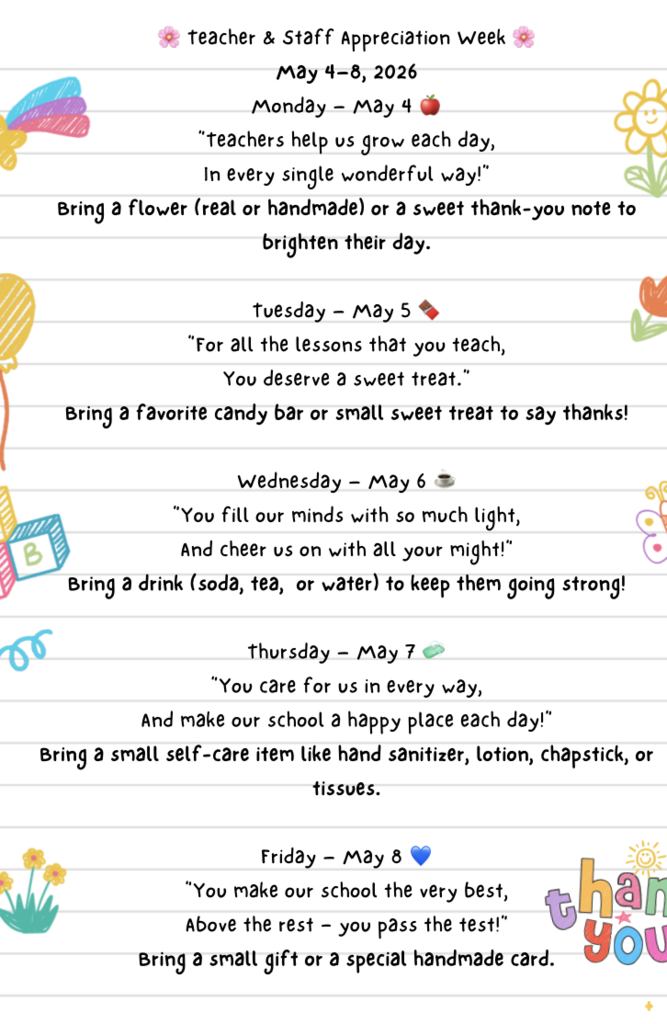 🌸 Teacher & Staff Appreciation Week 🌸
May 4–8, 2026
Monday – May 4 🍎
"Teachers help us grow each day,
In every single wonderful way!"
Bring a flower (real or handmade) or a sweet thank-you note to
brighten their day.
Tuesday – May 5 🍫
"For all the lessons that you teach,
You deserve a sweet treat."
Bring a favorite candy bar or small sweet treat to say thanks!
Wednesday – May 6 ☕
"You fill our minds with so much light,
And cheer us on with all your might!"
Bring a drink (soda, tea, or water) to keep them going strong!
B
Thursday – May 7 🧼
"You care for us in every way,
And make our school a happy place each day!"
Bring a small self-care item like hand sanitizer, lotion, chapstick, or
tissues.
Friday – May 8 💙
"You make our school the very best,
Above the rest – you pass the test!"
Bring a small gift or a special handmade card.
than
you